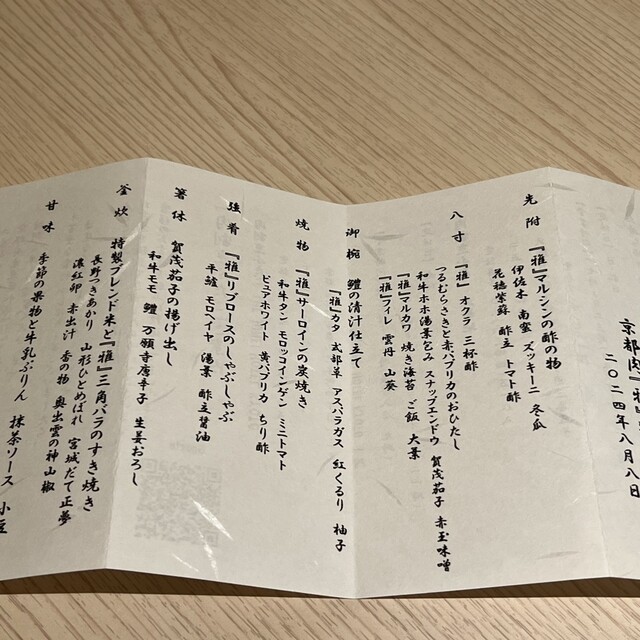 京都肉『雅
二〇二四年八月八日
先附
『雅』マルシンの酢の物
伊佐木 南蛮 ズッキーニ 冬瓜
花穂紫蘇 酢立 トマト酢
八寸
『雅』 オクラ 三杯酢
つるむらさきと赤パプリカのおひたし
和牛ホホ湯葉とみ スナップエンドウ 賀茂茄子 赤玉味噌
『雅』マルカワ 焼き海苔 ご飯 大葉
『雅』フィレ 雲丹 山葵
御椀
鱧の清汁仕立て
『雅』カタ 式部草 アスパラガス 紅くるり 柚子
焼物
『雅』サーロインの炭焼き
和牛タン モロッコインゲン ミニトマト
ピュアホワイト 黄パプリカ ちり酢
強肴
『雅』リブロースのしゃぶしゃぶ
平鱸 モロヘイヤ 湯葉 酢立醤油
箸休
賀茂茄子の揚げ出し
和牛モモ 鱧 万願寺唐辛子 生姜おろし
釜炊
特製ブレンド米と『雅』三角バラのすき焼き
長野つきあかり 山形ひとめぼれ 宮城だて正夢
濃紅卵 赤出汁 香の物 奥出雲の神山椒
甘味
季節の果物と牛乳ぷりん 抹茶ソース 小豆